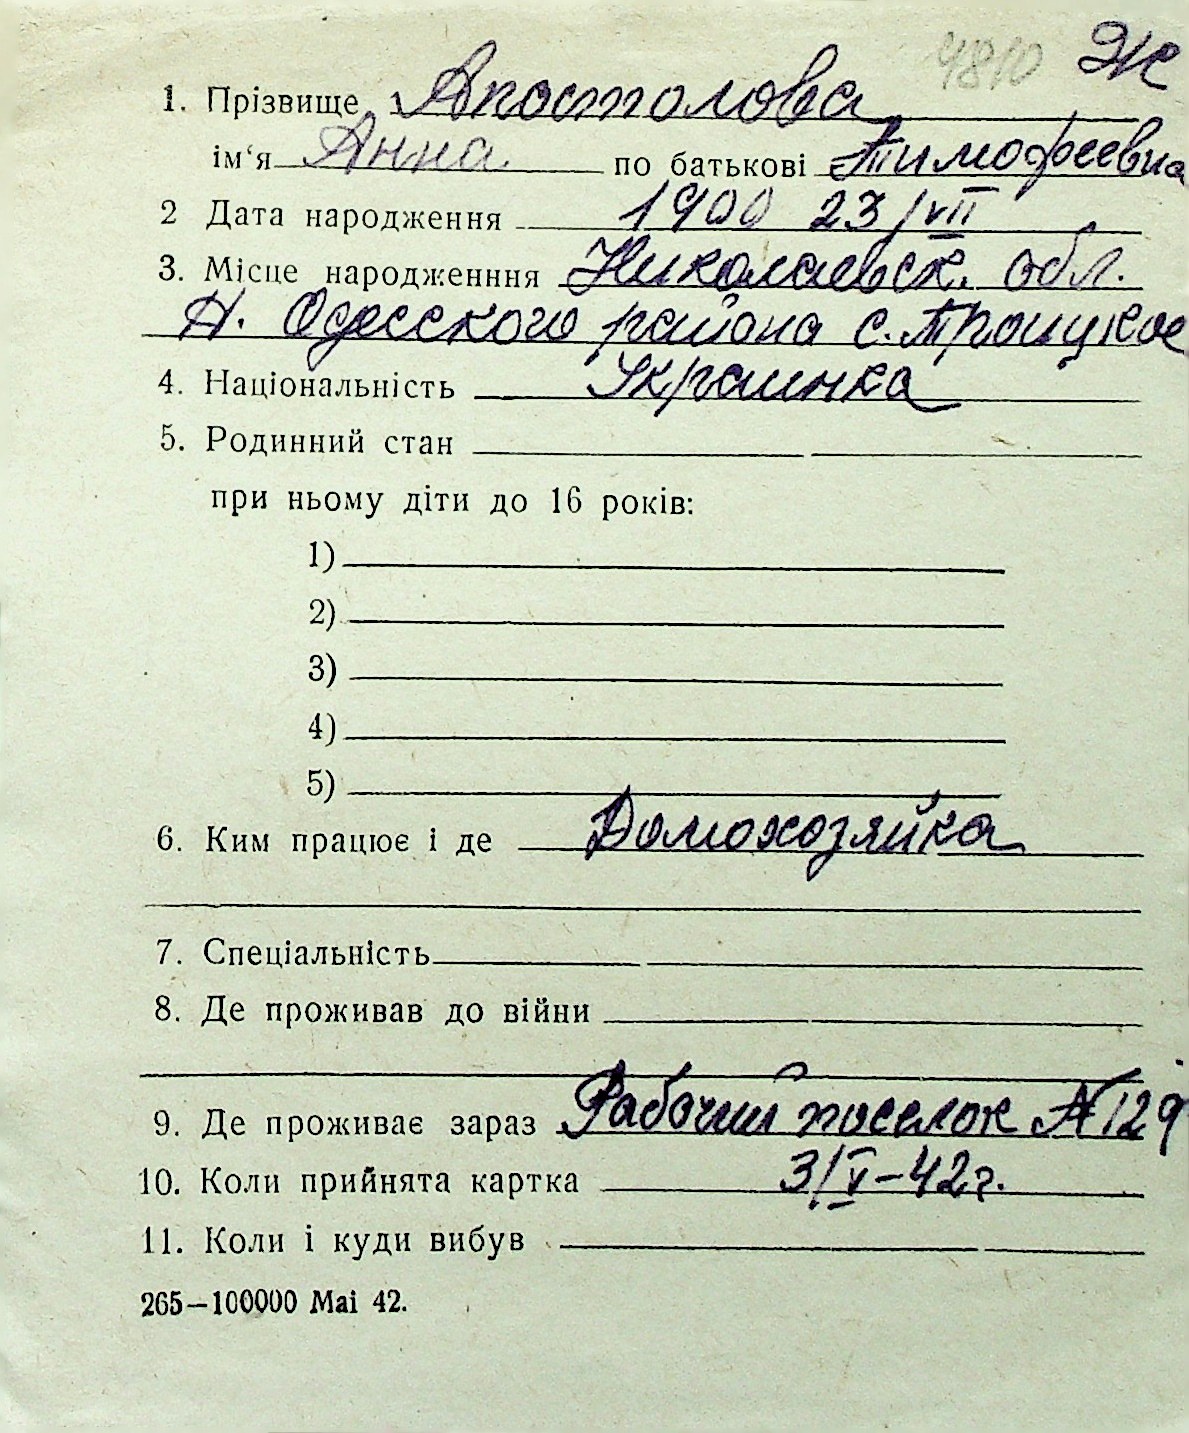 4810 Ж
1. Прізвище Апостолова
ім‘я Анна по батькові Тимофеевна
2 Дата народження 1900 23/VII
3. Місце народженння Николаевск. обл.
Н. Одесского района с. Троицкое
4. Національність Украинка
5. Родинний стан
при ньому діти до 16 років:
1)
2)
3)
4)
5)
6. Ким працює і де Домохозяйка
7. Спеціальність
8. Де проживав до війни
9. Де проживає зараз Рабочий поселок № 129
10. Коли прийнята картка 3/V-42г.
11. Коли і куди вибув
265—100000 Mai 42.